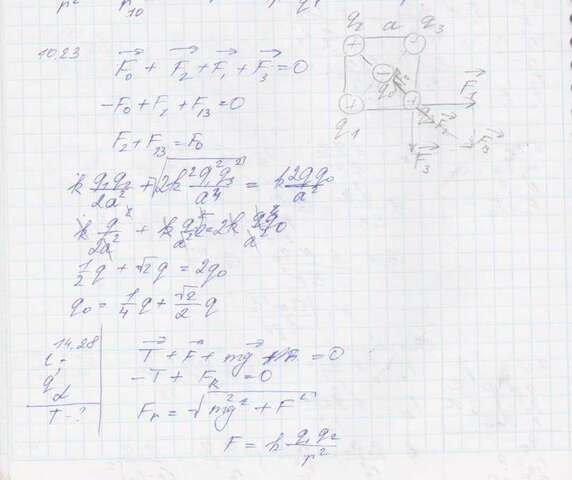 10.23
F₀ + F₂ + F₁ + F₃ = 0
-F₀ + F₂ + F₁₃ = 0
F₂ + F₁₃ = F₀
k q₁q₂/2a² + √2k² q₁²q₃²/a⁴ = k 2qq₀/a²
1/2 q + √2 q = 2q₀
q₀ = 1/4 q + √2/2 q
q₂ a q₃
q₀
q₁
F₁
F₂
F₁₃
F₃
14.28
l
q
α
T - ?
T + F + mg = 0
-T + F_R = 0
F_R = √mg² + F²
F = k q₁q₂/r²